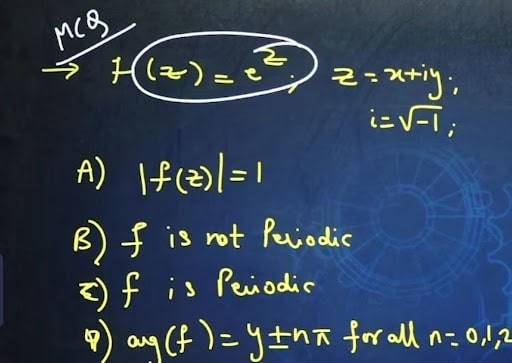 MCQ
→ f(z) = e^z ; z = x+iy ;
i = √-1 ;
A) |f(z)| = 1
B) f is not Periodic
C) f is Periodic
D) arg(f) = y ± nπ for all n = 0,1,2